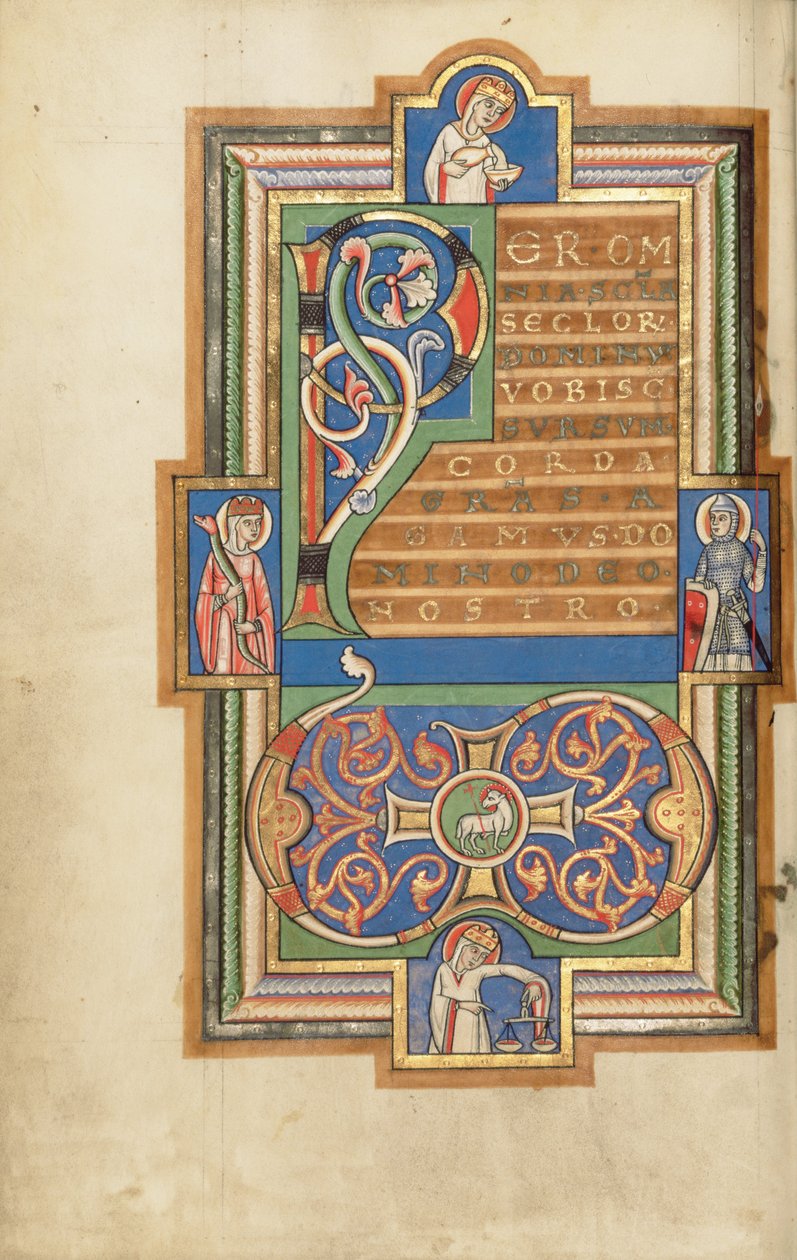 PER·OM
NIA·SCLA
SECLOR·
DOMINV
VOBISC
SVRSVM
CORDA
GRAS·A
GAMVS·DO
MINO DEO·
NOSTRO·